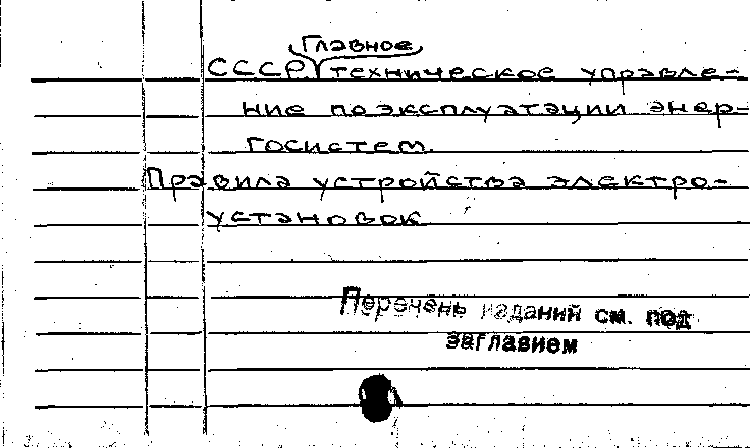 Главное
СССР техническое управле-
ние по эксплуатации энер-
госистем.
Правила устройства электро-
установок
Перечень изданий см. под
заглавием